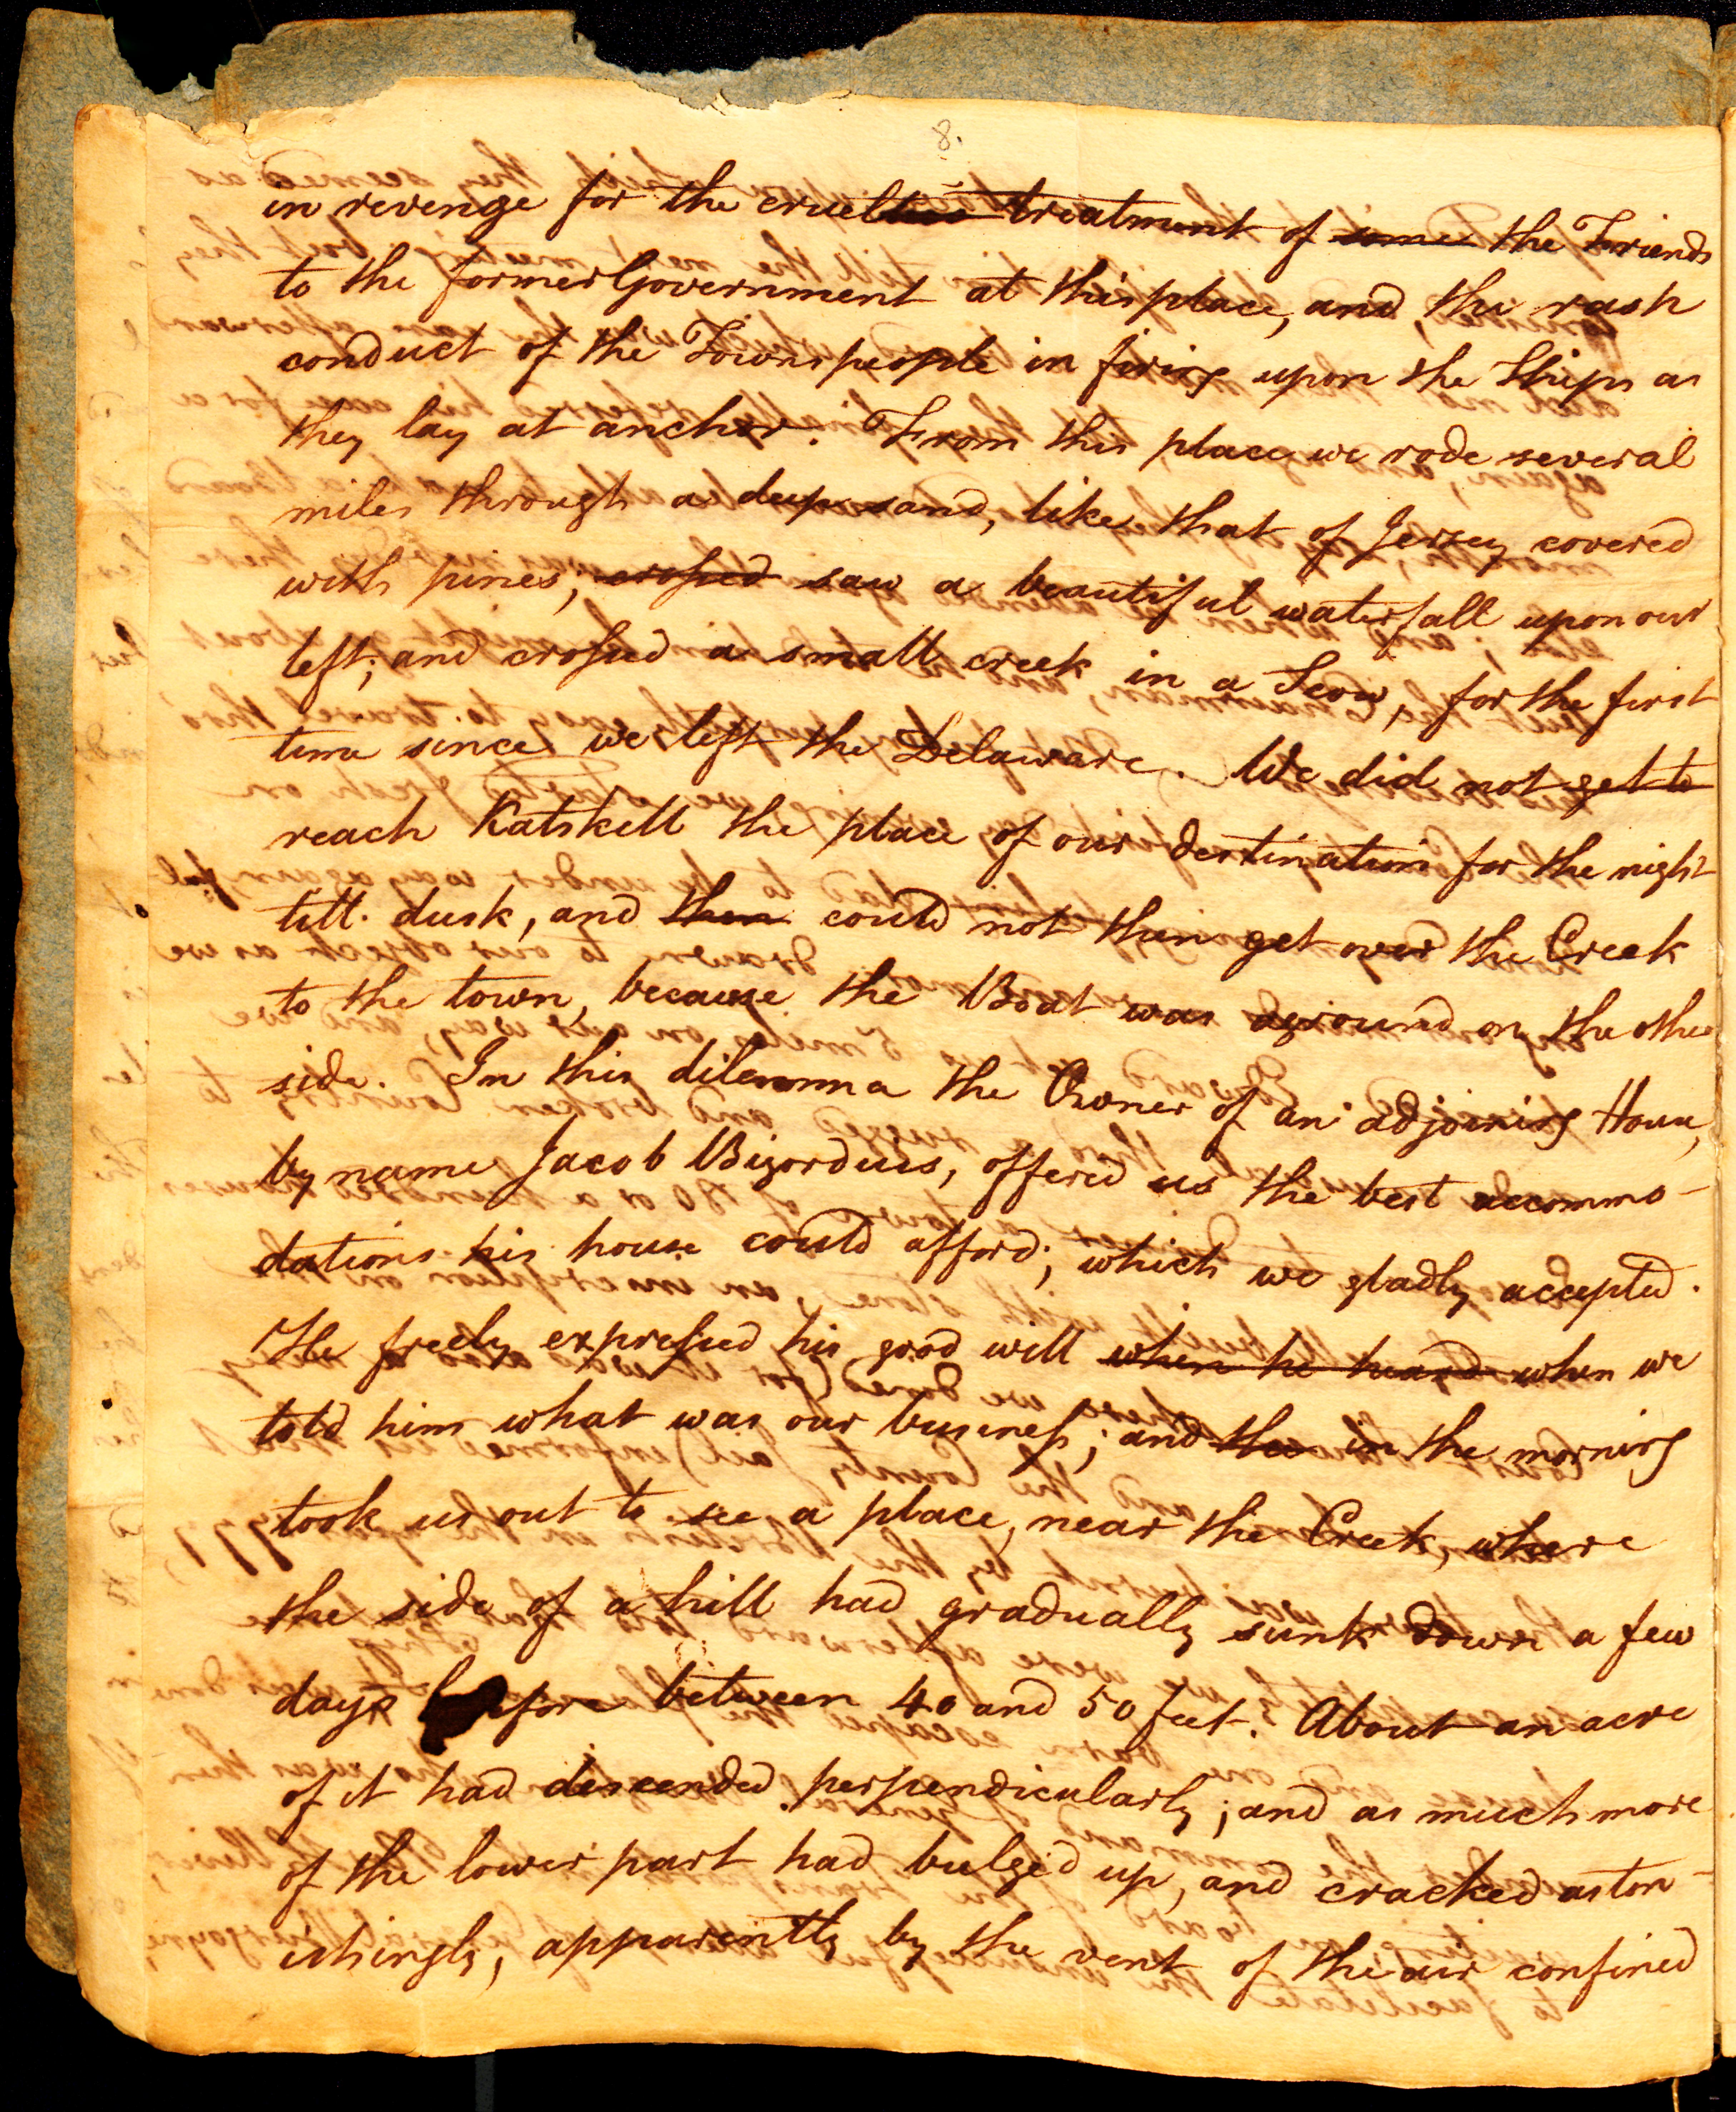 8.
in revenge for the cruelties treatment of some the Friends
to the former Government at this place, and, the rash
conduct of the Towns people in firing upon the Ships as
they lay at anchor. From this place we rode several
miles through a deep sand, like that of Jersey covered
with pines; crossed saw a beautiful waterfall upon our
left; and crossed a small creek in a Scow, for the first
time since we left the Delaware. We did not get to
reach Katskell the place of our destination for the night
till dusk, and then could not then get over the Creek
to the town, because the Boat was aground on the other
side. In this dilemma the Owner of an adjoining House,
by name Jacob Bigordus, offered us the best accommo-
dations his house could afford; which we gladly accepted.
He freely expressed his good will when he heard when we
told him what was our business; and the in the morning
took us out to see a place, near the Creek, where
the side of a hill had gradually sunk down a few
days before between 40 and 50 feet. About an acre
of it had descended perpendicularly; and as much more
of the lower part had bulged up, and cracked aston-
ishingly, apparently by the vent of the air confined